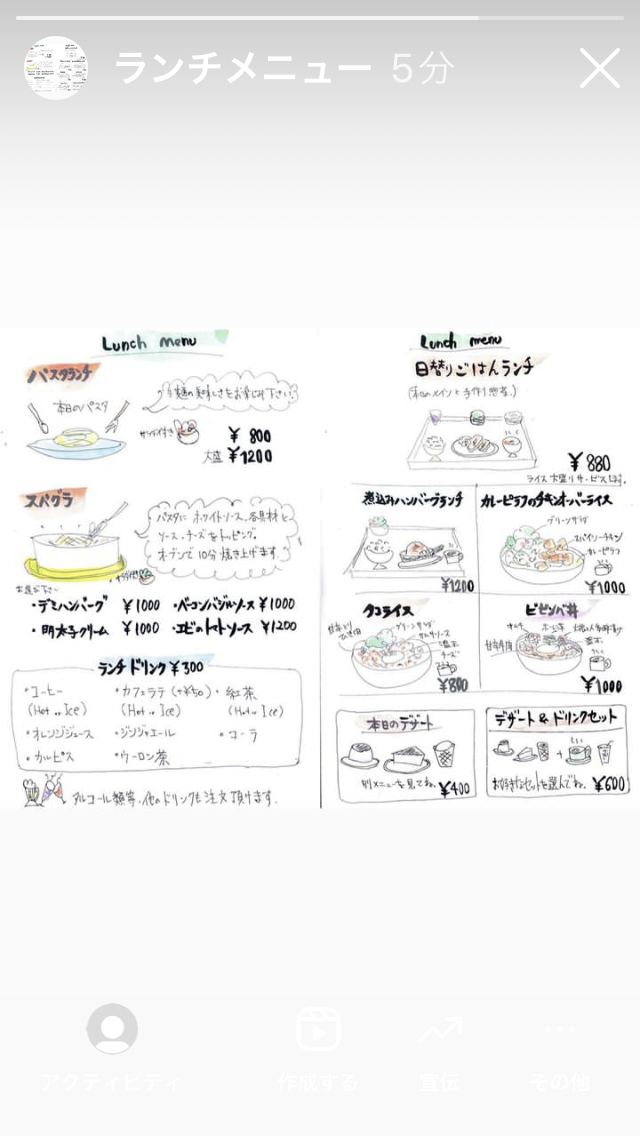 ランチメニュー 5分
Lunch menu
パスタランチ
本日のパスタ
サラダ付き
¥800
大盛 ¥1200
スパグラ
パスタに ホワイトソース、各具材と
ソース・チーズをトッピング。
オーブンで10分焼き上げます。
サラダ付き
・デミハンバーグ ¥1000 ・ベーコンバジルソース ¥1000
・明太子クリーム ¥1000 ・エビのトマトソース ¥1200
ランチドリンク ¥300
・コーヒー ・カフェラテ (+¥50) ・紅茶
(Hot or Ice) (Hot or Ice) (Hot or Ice)
・オレンジジュース ・ジンジャエール ・コーラ
・カルピス ・ウーロン茶
アルコール類等、他のドリンクも注文頂けます。
Lunch menu
日替りごはんランチ
(本日のメインと手作り惣菜。)
¥880
ライス大盛りサービス
煮込みハンバーグランチ
¥1200
カレーピラフのチキンオーバーライス
グリーンサラダ
スパイシーチキン
カレーピラフ
¥1000
タコライス
グリーンサラダ
サルサソース
チーズ
¥800
ビビンバ丼
¥1000
本日のデザート
別メニューを見てね。 ¥400
デザート&ドリンクセット
お好きなセットを選んでね。 ¥600
アクティビティ 作成する 宣伝 その他